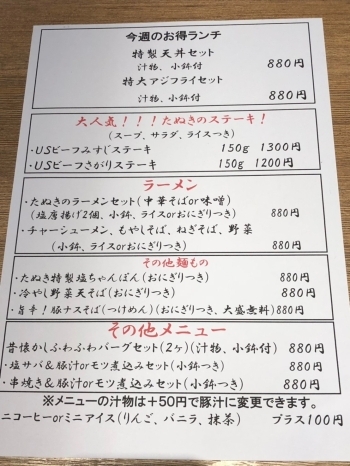 今週のお得ランチ
特製天丼セット
汁物、小鉢付 880円
特大アジフライセット
汁物、小鉢付 880円
大人気！！！たぬきのステーキ！
(スープ、サラダ、ライスつき)
・USビーフみすじステーキ 150g 1300円
・USビーフさがりステーキ 150g 1200円
ラーメン
・たぬきのラーメンセット(中華そばor味噌)
(塩唐揚げ2個、小鉢、ライスorおにぎりつき) 880円
・チャーシューメン、もやしそば、ねぎそば、野菜
(小鉢、ライスorおにぎりつき) 880円
その他麺もの
・たぬき特製塩ちゃんぽん(おにぎりつき) 880円
・冷やし野菜天そば(おにぎりつき) 880円
・旨辛！豚ナスそば(つけめん)(おにぎりつき、大盛無料)880円
その他メニュー
昔懐かしふわふわバーグセット(2ヶ)(汁物、小鉢付) 880円
・塩サバ&豚汁orモツ煮込みセット(小鉢つき) 880円
・串焼き&豚汁orモツ煮込みセット(小鉢つき) 880円
※メニューの汁物は+50円で豚汁に変更できます。
ニコーヒーorミニアイス(りんご、バニラ、抹茶) プラス100円